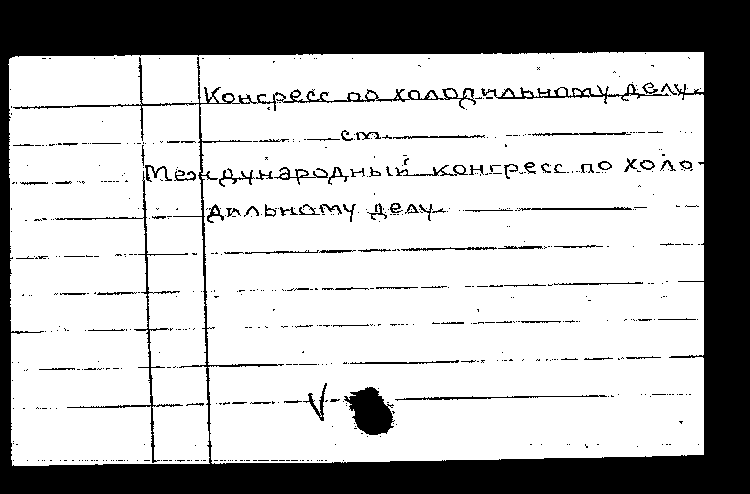 Конгресс по холодильному делу.
см.
Международный конгресс по холо-
дильному делу.